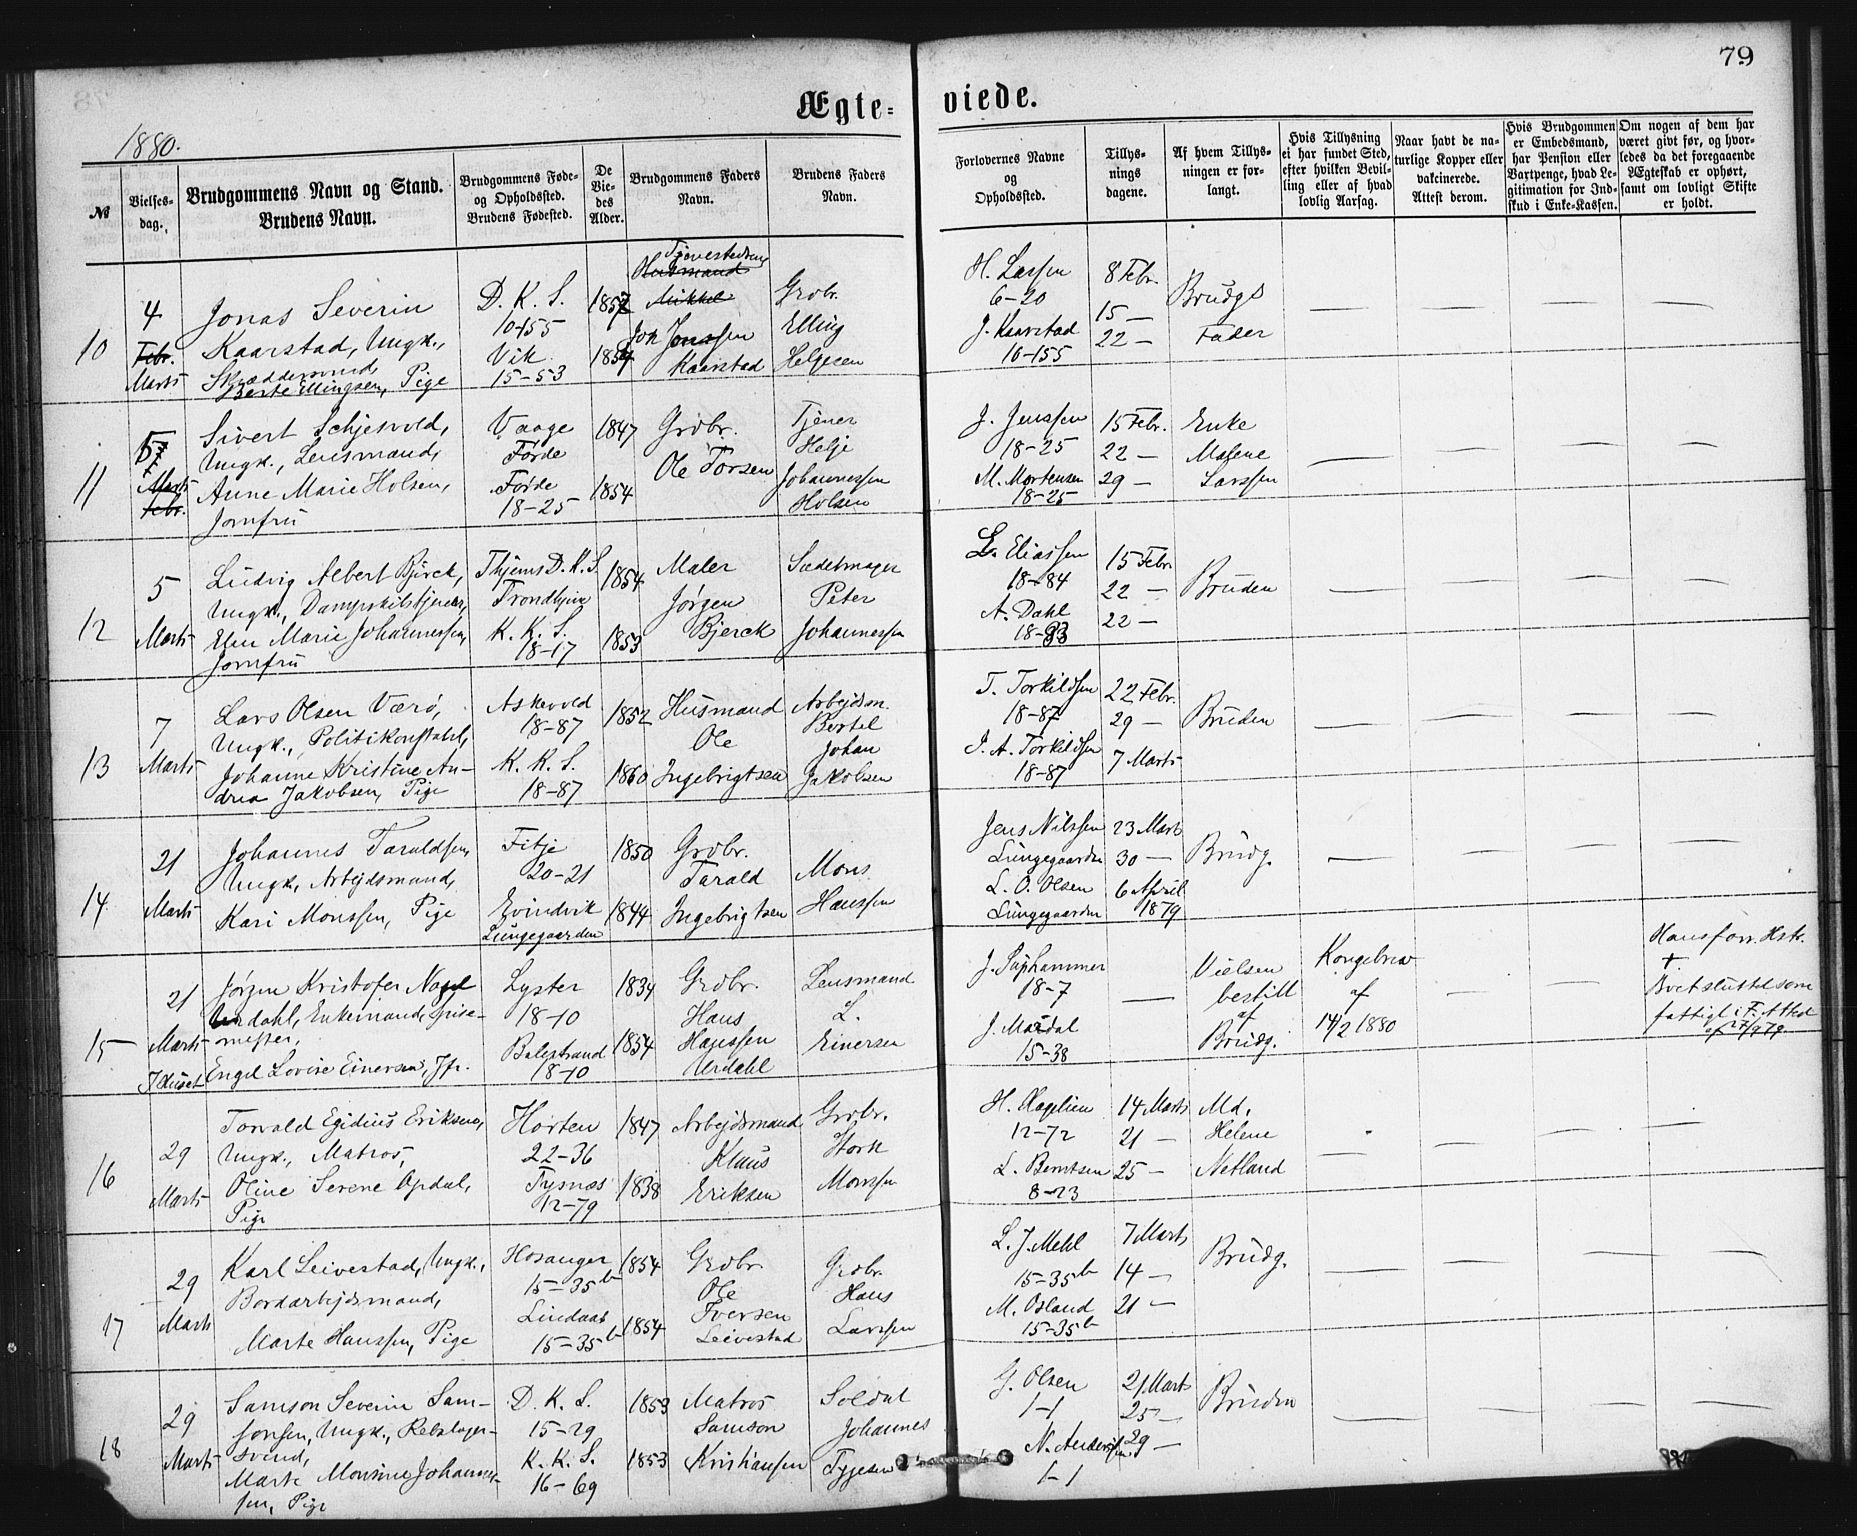 79
Ægte-
viede.
1880.
№
Vielses-
dag.
Brudgommens Navn og Stand.
Brudens Navn.
Brudgommens Føde-
og Opholdssted.
Brudens Fødested.
De
Vie-
des
Alder.
Brudgommens Faders
Navn.
Brudens Faders
Navn.
Forlovernes Navne
og
Opholdssted.
Tillys-
nings
dagene.
Af hvem Tillys-
ningen er for-
langt.
Hvis Tillysning
ei har fundet Sted,
efter hvilken Bevil-
ling eller af hvad
lovlig Aarsag.
Naar havt de na-
turlige Kopper eller
vakcinerede.
Attest derom.
Hvis Brudgommen
er Embedsmand,
har Pension eller
Vartpenge, hvad Le-
gitimation for Ind-
skud i Enke-Kassen.
Om nogen af dem har
været givt før, og hvor-
ledes da det foregaaende
Ægteskab er ophørt,
samt om lovligt Skifte
er holdt.
10
4
Febr.
Marts
Jonas Severin
Kaarstad, Ungk.,
Skræddersvend,
Berte Ellingsen, Pige
D. K. S.
10-155
Vik
15-53
1857
1854
Husmand
Mikkel
Joh Jonssen
Kaarstad
Grdbr.
Elling
Helgesen
H. Lassen
6-20
J. Kaarstad
10-155
8 Febr.
15 —
22 —
Brudgs
Fader
11
5
Marts
Febr.
Sivert Schjesvold,
Ungk., Lensmand,
Anne Marie Holsen,
Jomfru
Vaage
Førde
Førde
18-25
1847
1854
Grdbr.
Ole Torsen
Tjener
Helje
Johannessen
Holsen
J. Jenssen
18-25
M. Mortensen
18-25
15 Febr.
22 —
29 —
Enke
Malene
Larssen
12
5
Marts
Ludvig Albert Bjerck,
Ungk., Dampskibstjener,
Elen Marie Johannessen,
Jomfru
Thjems D. K. S.
Trondhjem
K. K. S.
18-17
1854
1853
Maler
Jørgen
Bjerck
Sadelmager
Peter
Johannessen
L. Eliassen
18-84
A. Dahl
18-33
15 Febr.
22 —
22 —
Bruden
13
7
Marts
Lars Olsen Værø,
Ungk., Politikonstabel,
Johanne Kristine An-
drea Jakobsen, Pige
Askevold
18-87
K. K. S.
18-87
1852
1860
Husmand
Ole
Ingebrigtsen
Arbejdsm.
Bertel
Johan
Jakobsen
T. Torkildsen
18-87
J. A. Torkildsen
18-87
22 Febr.
29 —
7 Marts
Bruden
14
21
Marts
Johannes Taraldsen,
Ungk., Arbejdsmand,
Kari Monssen, Pige
Fitje
20-21
Evindvik
Lungegaarden
1850
1844
Grdbr.
Tarald
Ingebrigtsen
Mons
Hanssen
Jens Nilssen
Lungegaarden
L. O. Olsen
Lungegaarden
23 Marts
30 —
6 April
1879
Brudg.
15
21
Marts
I Huset
Jørgen Kristofer Nagel
Urdahl, Enkemand, Spise-
mester,
Engel Lovise Einersen, Jfr.
Lyster
18-10
Balestrand
18-10
1834
1854
Grdbr.
Hans
Hanssen
Urdahl
Lensmand
L.
Einersen
18-7
15-38
Vielsen
bestilt
af
Brudg.
Kongebrev
af
14/2 1880
16
29
Marts
Torvald Egidius Eriksen,
Ungk., Matros,
Oline Serene Opdal,
Pige
Horten
22-36
Tysnæs
12-79
1847
1838
Arbejdsmand
Klaus
Eriksen
Grdbr.
Monssen
12-72
L. Berntsen
8-23
14 Marts
21 —
25 —
Md.
Helene
Netland
17
29
Marts
Karl Leivestad, Ungk.,
Bordarbejdsmand,
Marte Hanssen, Pige
Hosanger
15-35b
Lindaas
15-35b
1854
1854
Grdbr.
Ole
Iversen
Leivestad
Grdbr.
Hans
Larssen
L. J. Mehl
15-35b
M. Osland
15-35b
7 Marts
14 —
21 —
Brudg.
18
29
Marts
Samson Severin Sam-
sonsen, Ungk., Rebslager-
svend,
Marte Monsine Johannes-
sen, Pige
D. K. S.
15-29
K. K. S.
16-69
1853
1853
Matros
Samson
Kristiansen
Soldat
Johannes
Tygesen
G. Olsen
1-1
N. Andersen
1-1
21 Marts
25 —
29 —
Bruden